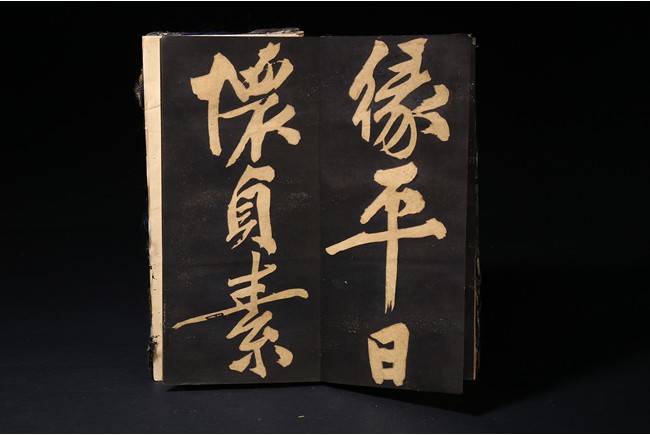 緣平日
懷貞素